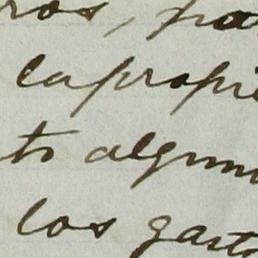 ros, pa
la propie
to alguno
los gasto